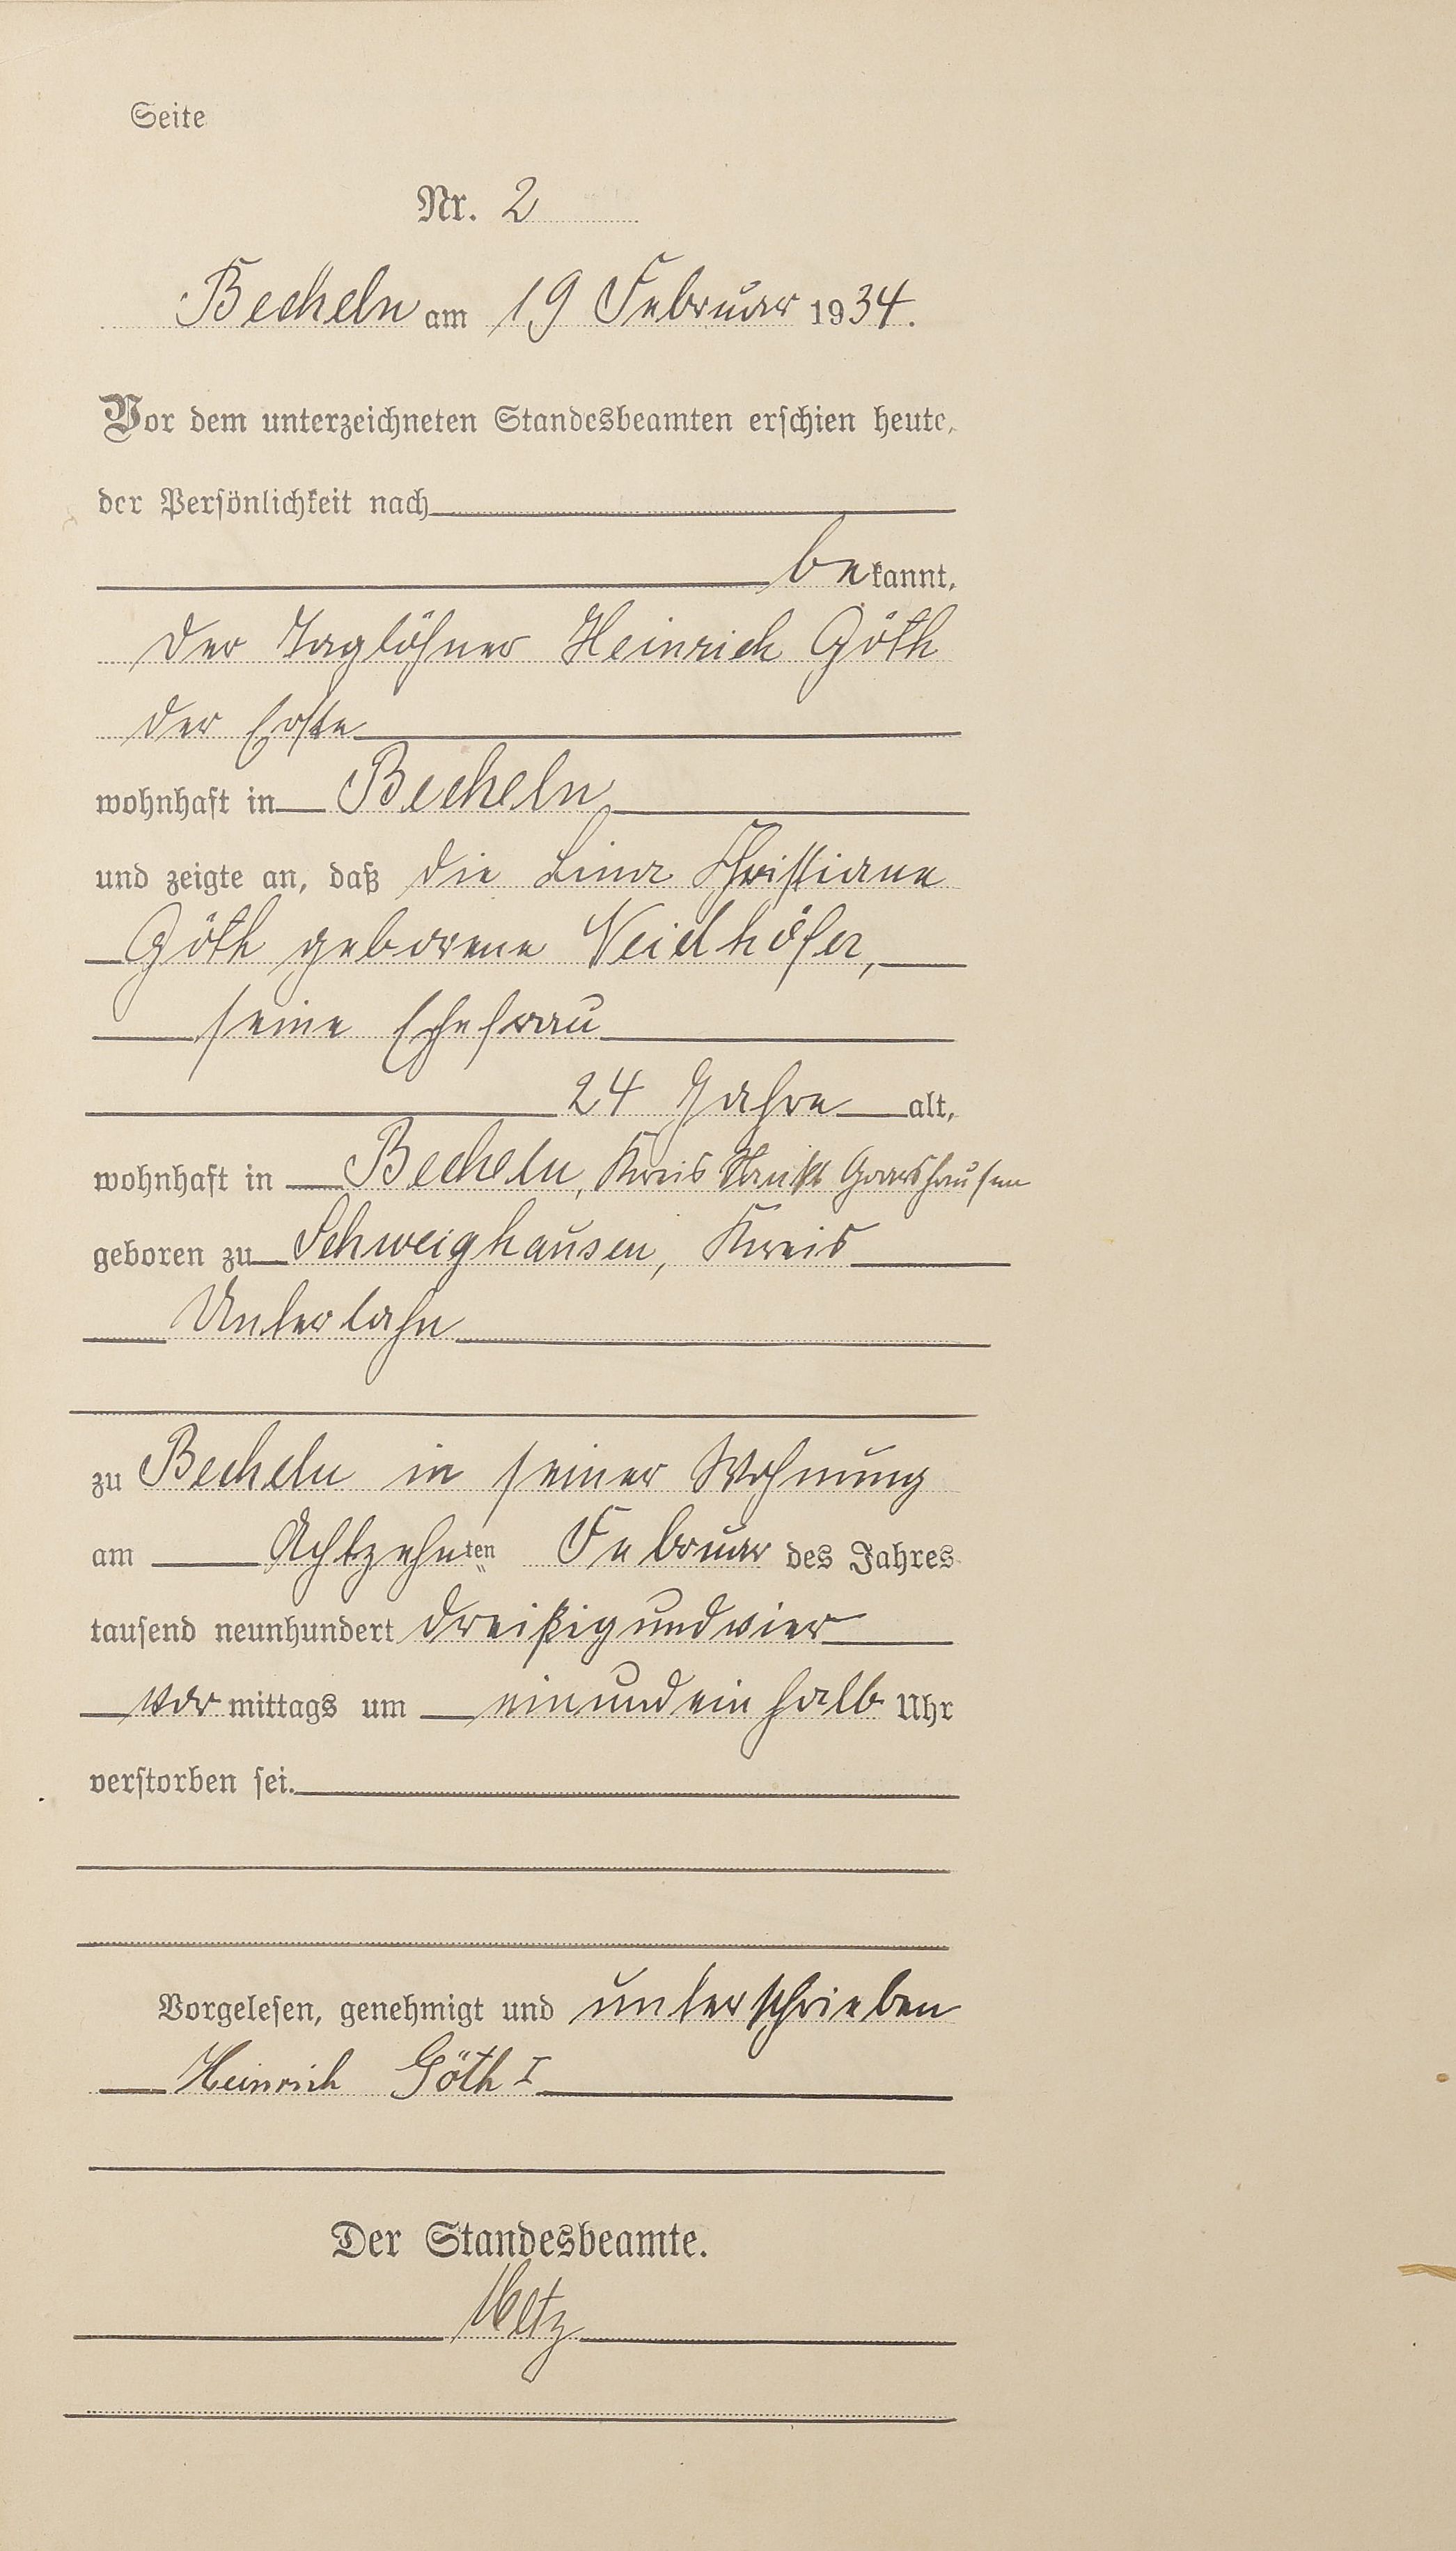 Seite
Nr. 2
Becheln am 19 Februar 1934.
Vor dem unterzeichneten Standesbeamten erschien heute,
der Persönlichkeit nach
bekannt,
der Taglöhner Heinrich Göth
der Erste
wohnhaft in Becheln
und zeigte an, daß die Lina Christiane
Göth geborene Neidhöfer,
seine Ehefrau
24 Jahre alt,
wohnhaft in Becheln, Kreis Sankt Goarshausen
geboren zu Schweighausen, Kreis
Unterlahn
zu Becheln in seiner Wohnung
am Achtzehnten Februar des Jahres
tausend neunhundert dreißigundvier
vormittags um einundein halb Uhr
verstorben sei.
Vorgelesen, genehmigt und unterschrieben
Heinrich Göth I
Der Standesbeamte.
Metz